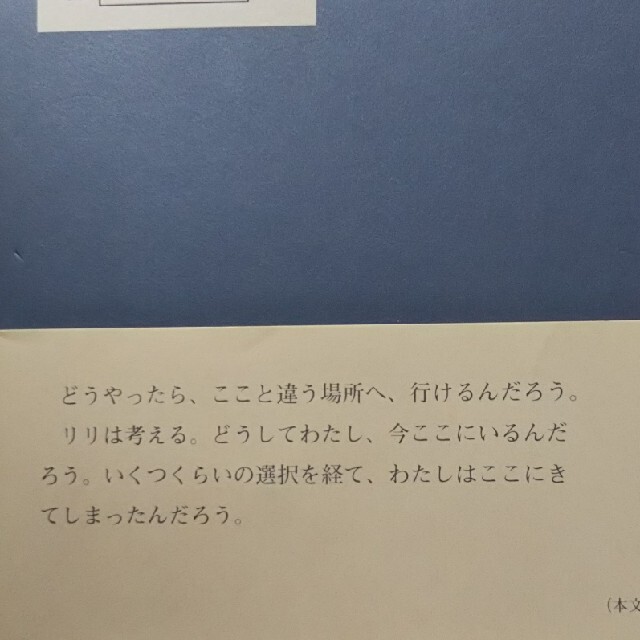 どうやったら、ここと違う場所へ、行けるんだろう。
リリは考える。どうしてわたし、今ここにいるんだ
ろう。いくつくらいの選択を経て、わたしはここにき
てしまったんだろう。
（本文